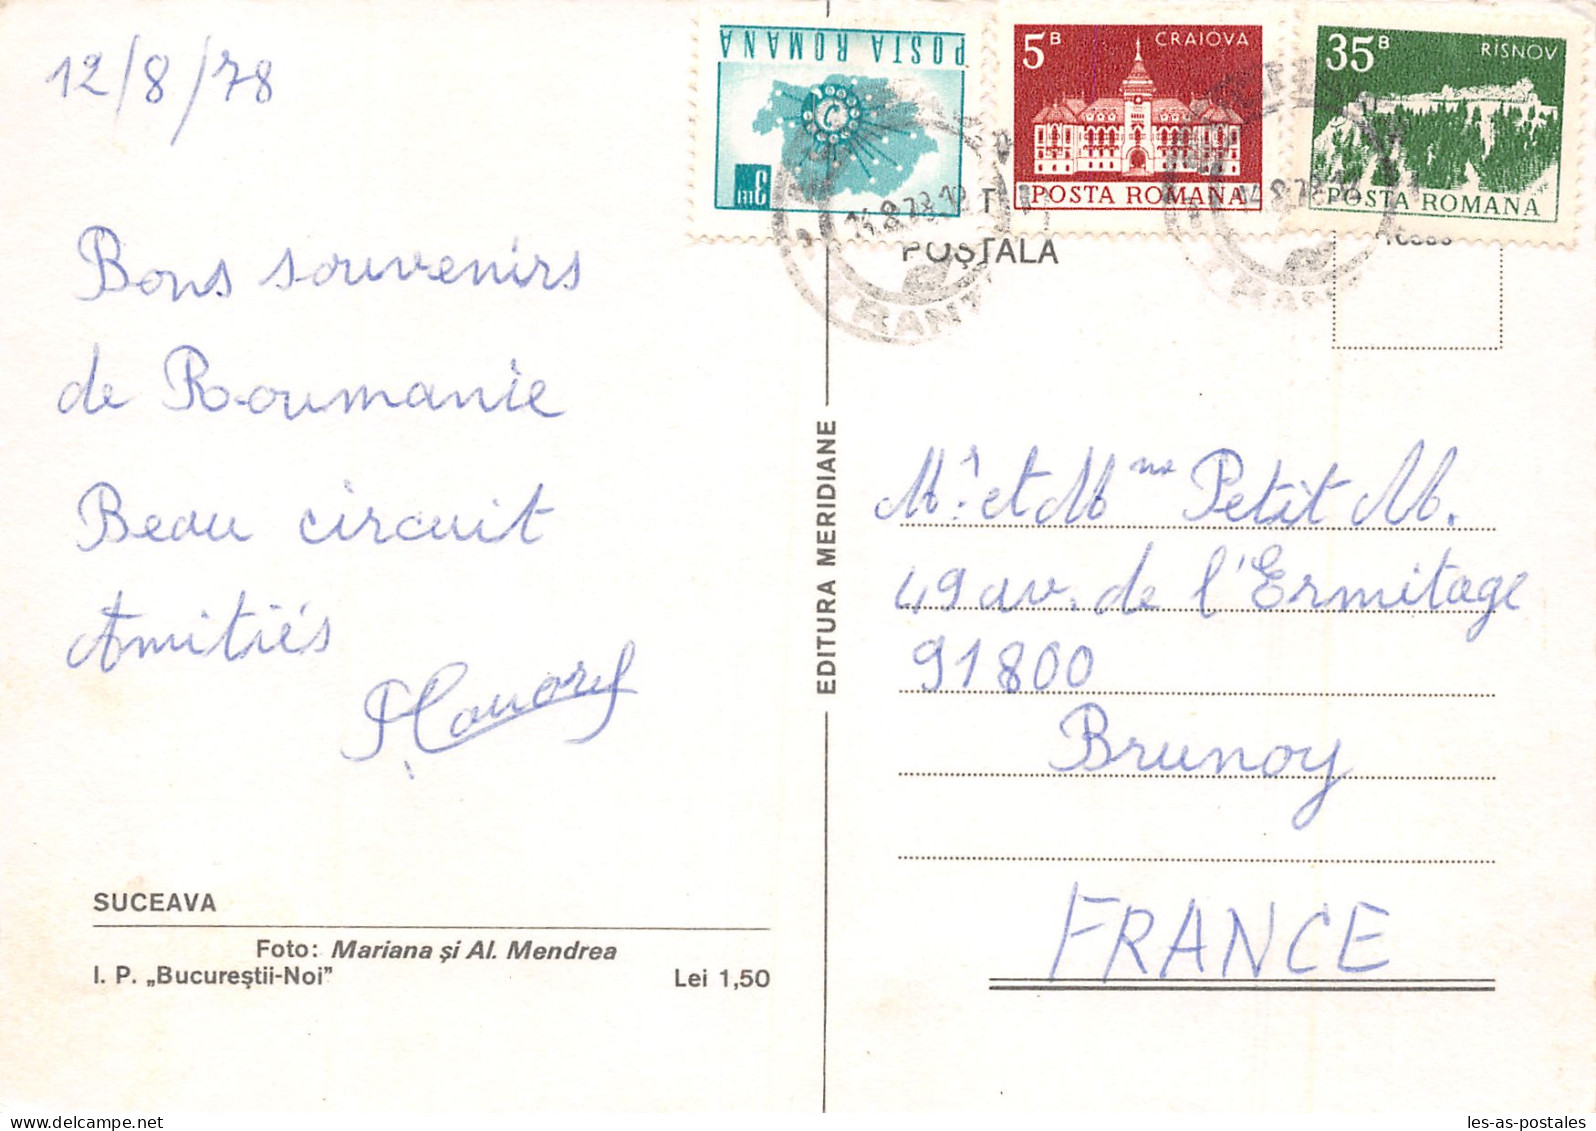 12/8/78
Bons souvenirs
de Roumanie
Beau circuit
Amitiés
SUCEAVA
Foto: Mariana și Al. Mendrea
I. P. „Bucureștii-Noi”
Lei 1,50
EDITURA MERIDIANE
POSTA ROMANA
3 LEI
5 B CRAIOVA
POSTA ROMANA
35 B RISNOV
POSTA ROMANA
14.8.78
POȘTALA
Mr. et Mme Petit M.
49 av. de l'Ermitage
91800
Brunoy
FRANCE
les-as-postales.com